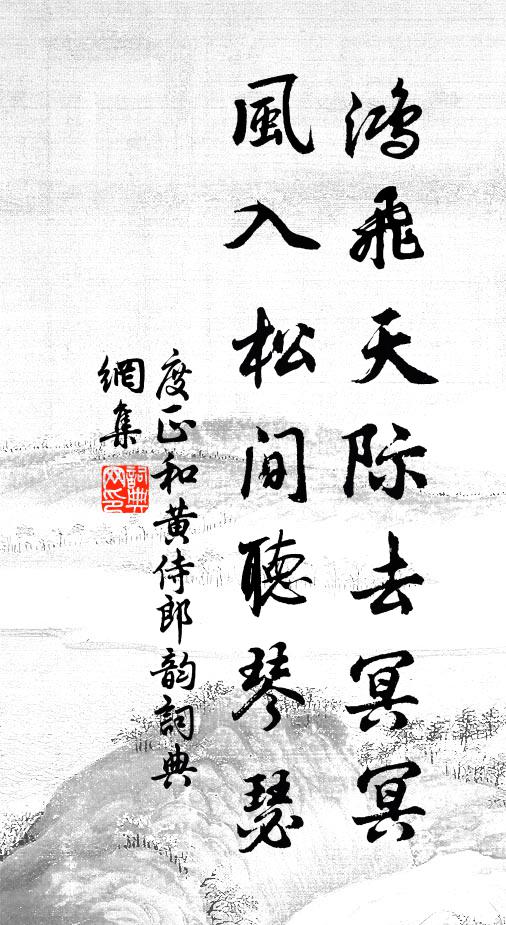 鴻飛天际去冥冥
風入松間聽琴瑟
度正和黄侍郎韵詞典
網集
詞典
网印